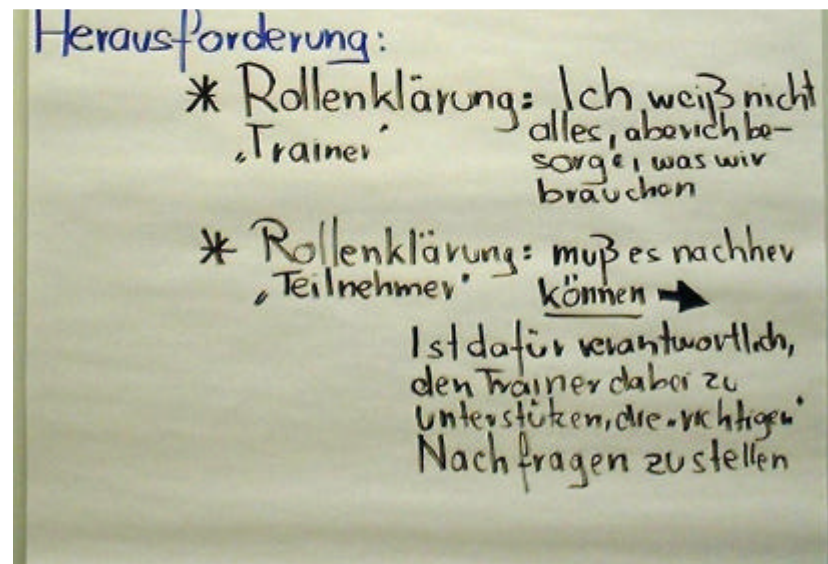 Herausforderung:
* Rollenklärung: Ich weiß nicht
„Trainer“ alles, aber ich be-
sorge, was wir
brauchen
* Rollenklärung: muß es nachher
„Teilnehmer“ können →
Ist dafür verantwortlich,
den Trainer dabei zu
unterstüzen, die „richtigen“
Nachfragen zu stellen